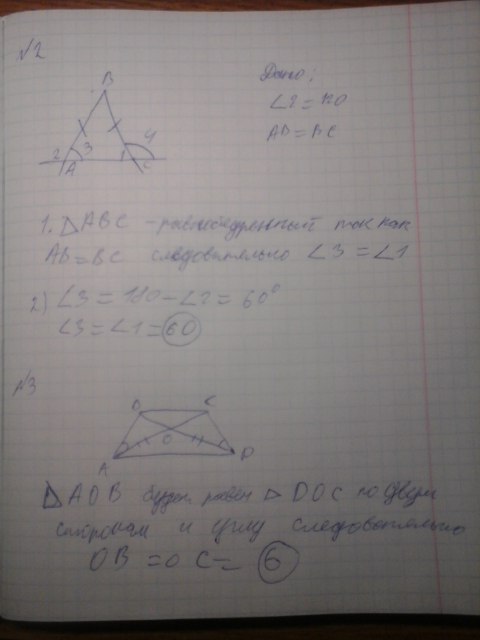 №2
B
Дано:
∠2=120
AB=BC
4
2 3 1
A C
1. △ABC – равнобедренный так как
AB=BC следовательно ∠3=∠1
2) ∠3=180-∠2=60°
∠3=∠1=60
№3
B C
O
A D
△AOB будет равен △DOC по двум
сторонам и углу следовательно
OB=OC=6